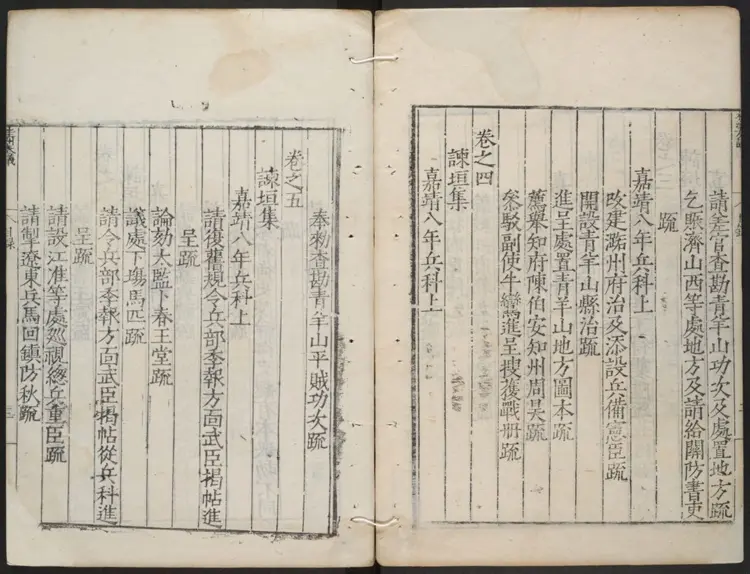 請差官查勘青羊山功次及處置地方疏
乞賑濟山西等處地方及請給關防書吏
疏
嘉靖八年兵科上
改建潞州府治及添設兵備憲臣疏
開設青羊山縣治疏
進呈處置青羊山地方圖本疏
薦舉知府陳伯安知州周昊疏
參駁副使牛鸞進呈搜獲戰册疏
卷之四
諫垣集
嘉靖八年兵科上
奉勑查勘青羊山平賊功次疏
卷之五
諫垣集
嘉靖八年兵科上
請復舊規令兵部季報方面武臣揭帖進
呈疏
論劾太監卜春王堂疏
議處下場馬匹疏
請令兵部季報方面武臣揭帖從兵科進
呈疏
請設江淮等處巡視總兵重臣疏
請掣遼東兵馬回鎮防秋疏